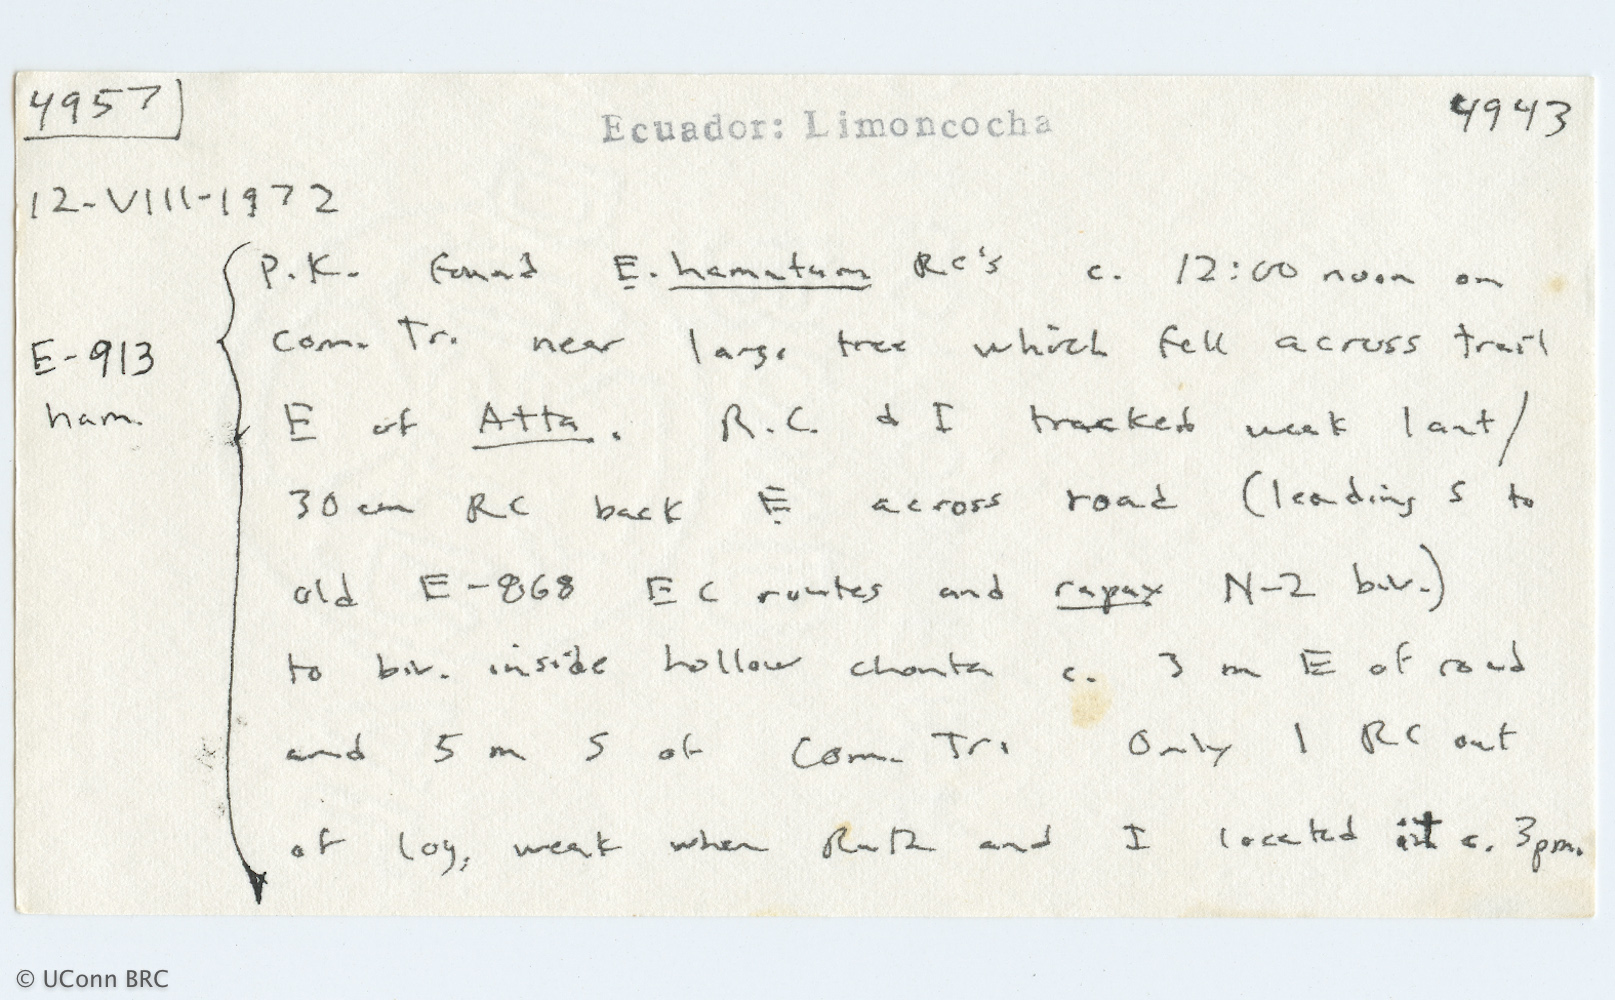 4957
Ecuador: Limoncocha
4943
12-VIII-1972
P.K. found E. hamatum RC's c. 12:00 noon on
Com. Tr. near large tree which fell across trail
E of Atta. R.C. & I tracked weak 1 ant/
30 cm RC back E across road (leading S to
old E-868 EC routes and rapax N-2 biv.)
to biv. inside hollow chonta c. 3 m E of road
and 5 m S of Com. Tr. Only 1 RC out
of log, weak when Ruth and I located it c. 3pm.
E-913
ham.
© UConn BRC